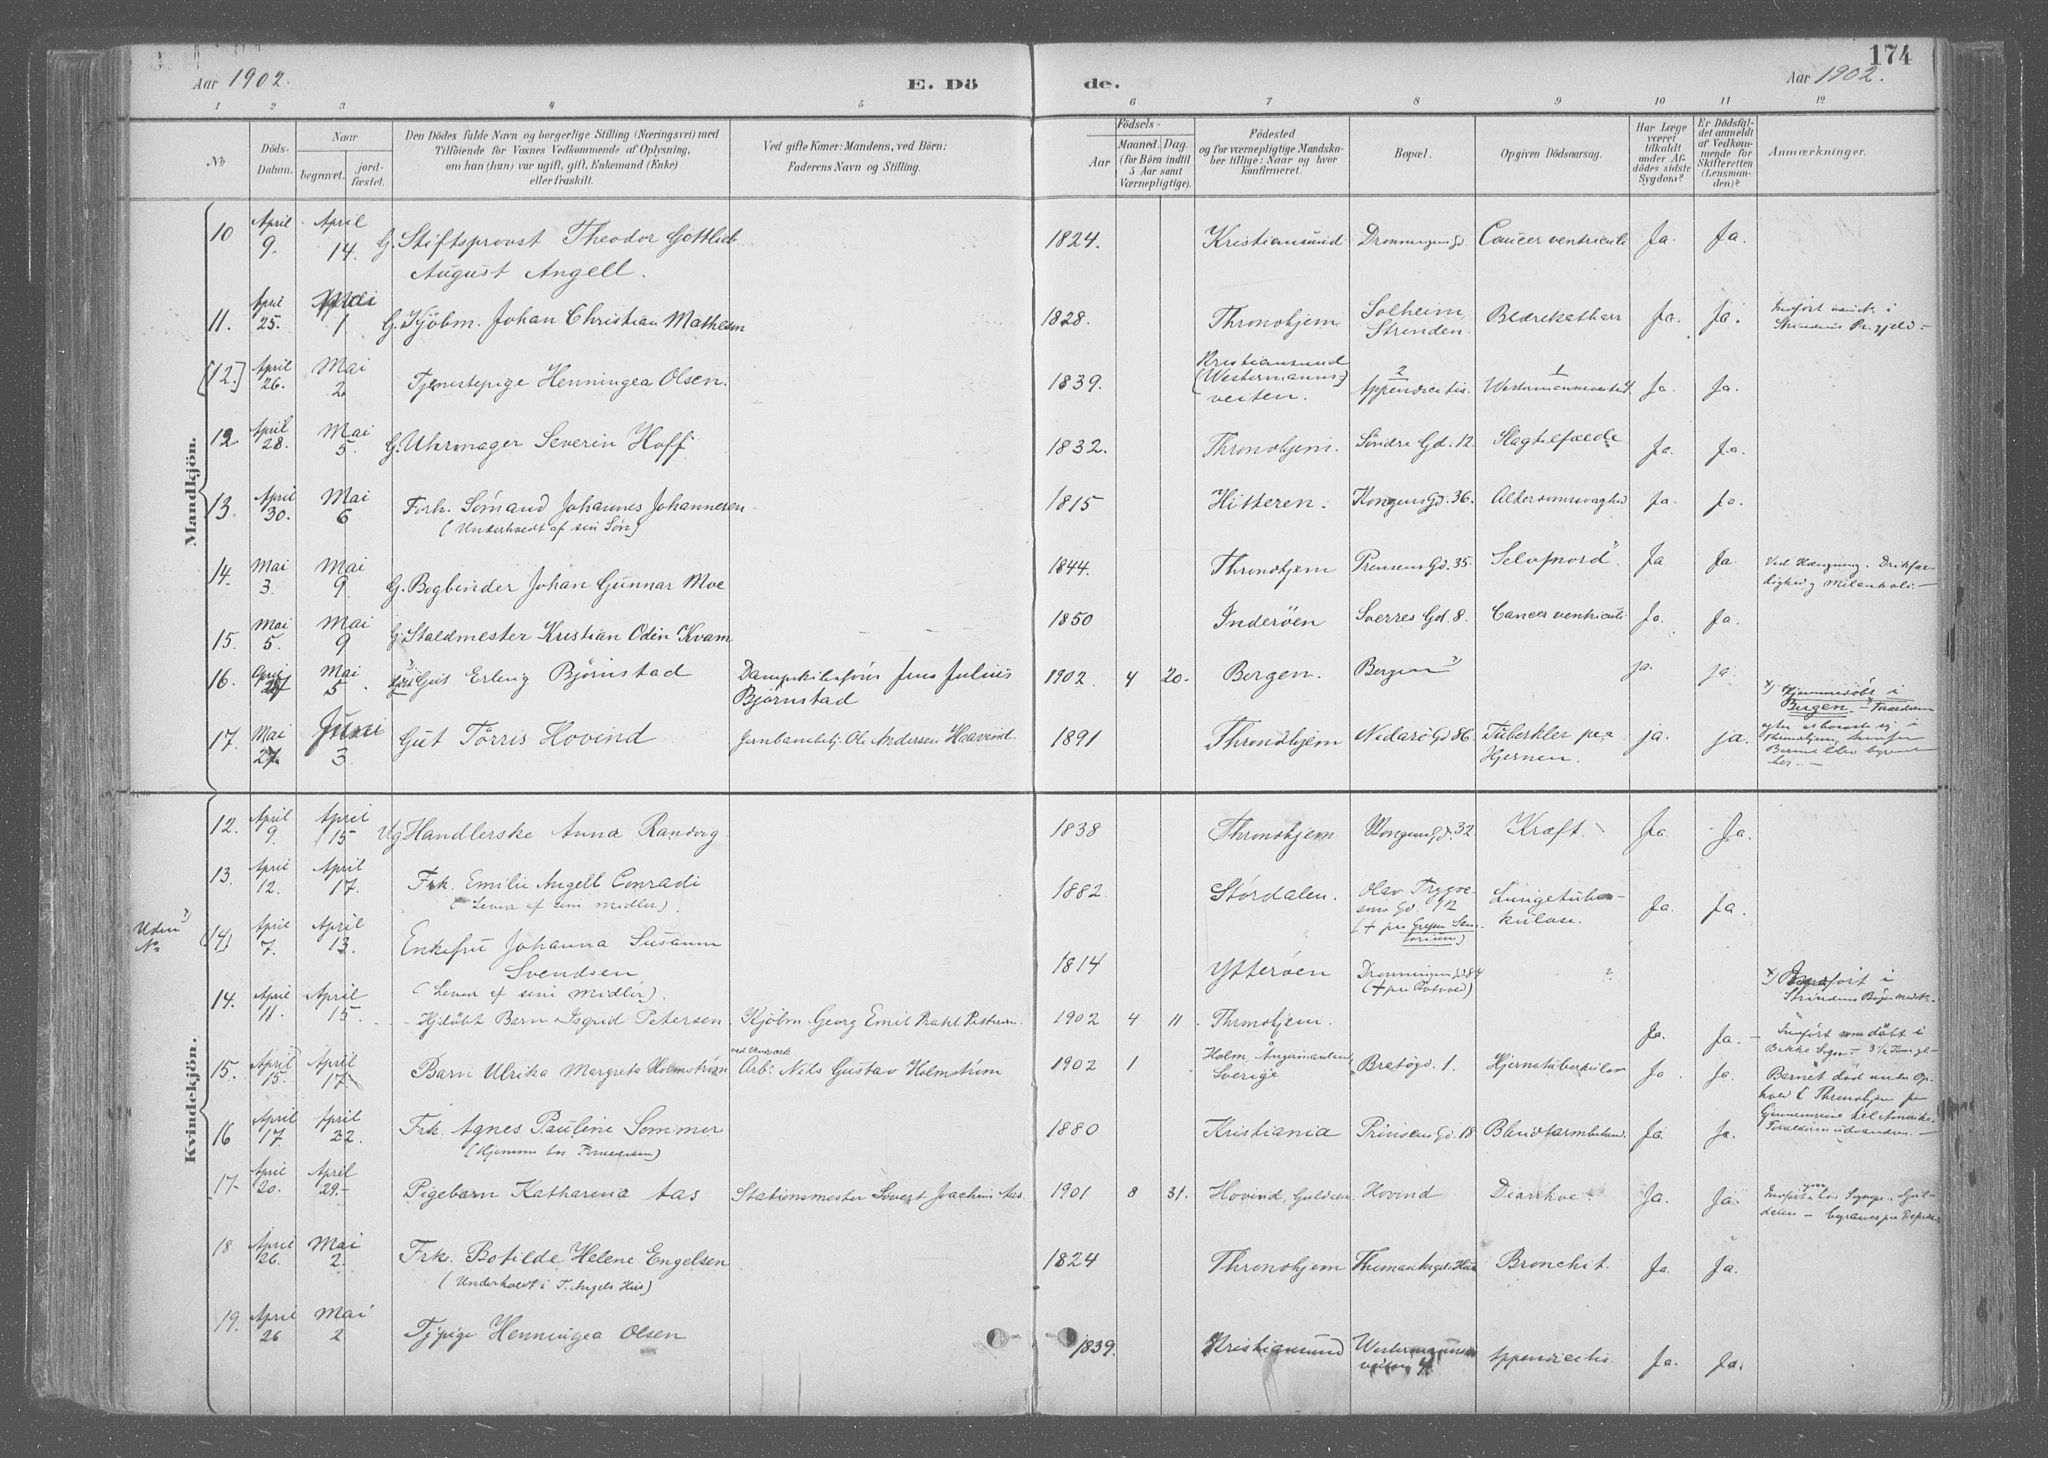 174
Aar 1902.
E. Dö
de.
Aar 1902.
1 2 3 4 5 6 7 8 9 10 11 12
No
Döds-Datum.
Naar
begravet.
jordfæstet.
Den Dödes fulde Navn og borgerlige Stilling (Næringsvei) med
Tilföiende for Voxnes Vedkommende af Oplysning,
om han (hun) var ugift, gift, Enkemand (Enke)
eller fraskilt.
Ved gifte Koner: Mandens, ved Börn:
Faderens Navn og Stilling.
Födsels-
Aar
Maaned. Dag.
(for Börn indtil
5 Aar samt
Værnepligtige).
Födested
og for værnepligtige Mandska-
ber tillige: Naar og hvor
konfirmeret.
Bopæl.
Opgiven Dödsaarsag.
Har Læge
været
tilkaldt
under Af-
dödes sidste
Sygdom?
Er Dödsfal-
det anmeldt
af Vedkom-
mende for
Skifteretten
(Lensman-
den)?
Anmærkninger.
Mandkjön.
10 April 9. April 14. G. Stiftsprovst Theodor Gottlieb 1824. Kristiansund Dronningens Gd. Cancer ventriculi Ja. Ja.
August Angell.
11. April 25. Mai 1 G. Kjöbm. Johan Christian Mathesen 1828. Thronhjem Solheim, Strinden. Blærekathar Ja. Ja. Indfört i
Strindens
[12.] April 26. Mai 2 Tjenestepige Henningea Olsen. 1839. Kristiansund (Westermanns-veiten. 2 Appendicitis. 1 Ja. Ja.
12 April 28. Mai 5. G. Uhrmager Severin Hoff 1832. Thronhjem. Söndre Gd. 12 Slagtilfælde Ja. Ja.
13. April 30. Mai 6 Forh. Sömand Johannes Johannesen 1815 Hitteren. Kongens Gd. 36. Alderdomssvaghed Ja. Ja.
(Underholdt af sin Sön)
14. Mai 3. Mai 9. G. Bogbinder Johan Gunnar Moe 1844. Throndhjem Prinsens Gd. 35. Selvmord Ja Ja. Ved Hængning.
15. Mai 5. Mai 9 G. Staldmester Kristian Odin Kvam 1850 Inderöen Sverres Gd. 8. Cancer ventriculi Ja. Ja.
16. April 27 Mai 5 Gut Erling Björnstad Dampskibsförer Jens Julius Björnstad 1902 4 20. Bergen. Bergen ja. ja. x) Hjemmedöbt i
Bergen.
17. Mai 27. Juni 3 Gut Torris Hovind Jernbanebetj. Ole Andersen Haavind 1891 Throndhjem Nidarö Gd 86. Tuberkler paa Hjernen. ja. ja.
Kvindekjön.
12. April 9. April 15 Ug Handlerske Anna Randorg 1838 Thronhjem Kongens Gd. 32 Kræft. Ja. Ja.
13. April 12. April 17. Frk. Emilie Angell Conradi 1882 Stördalen. Olav Trygvesens Gd. (+ paa Grefsen Sanatorium) Lungetuberkulose. Ja. Ja.
(Lever af sine midler).
Uden No (14) April 7. April 13. Enkefru Johanna Susanne Svendsen 1814 Ytteröen Dronningens Gd 84 (+ paa Rotvold) ?
(Lever af sine midler).
14. April 11. April 15. Hj.döbt Barn Ingrid Petersen Kjöbm. Georg Emil Prahl Petersen. 1902 4 11 Thronhjem. Ja. Ja. Indfört som döbt i
Bakke Sogn
15. April 15. April 17 Barn Ulrika Margreta Holmström Arb: Nils Gustav Holmström 1902 1 Holm, Ångermanland, Sverige Bratögd. 1. Hjernetuberkulose Ja Ja. Barnet död under Op-
hold i Thronhjem paa
Gjennemreise til Amerika.
16 April 17. April 22. Frk. Agnes Pauline Sommer 1880 Kristiania Prinsens Gd 18 Blindtarmbetænd. Ja. Ja.
(Hjemme hos Forældrene)
17. April 20. April 29. Pigebarn Katharina Aas Stationsmester Sivert Joachim Aas. 1901 8 31. Hovind, Guldalen. Hovind Diarrhoe Ja. Ja.
18 April 26. Mai 2. Frk. Botilde Helene Engelsen 1824 Thronhjem Thomas Angels Hus Bronchit. Ja. Ja.
(Underholdt i T. Angels Hus)
19. April 26 Mai 2 Tj.pige Henningea Olsen 1839. Kristiansund Westermannsveiten 4 Appendicitis Ja. Ja.